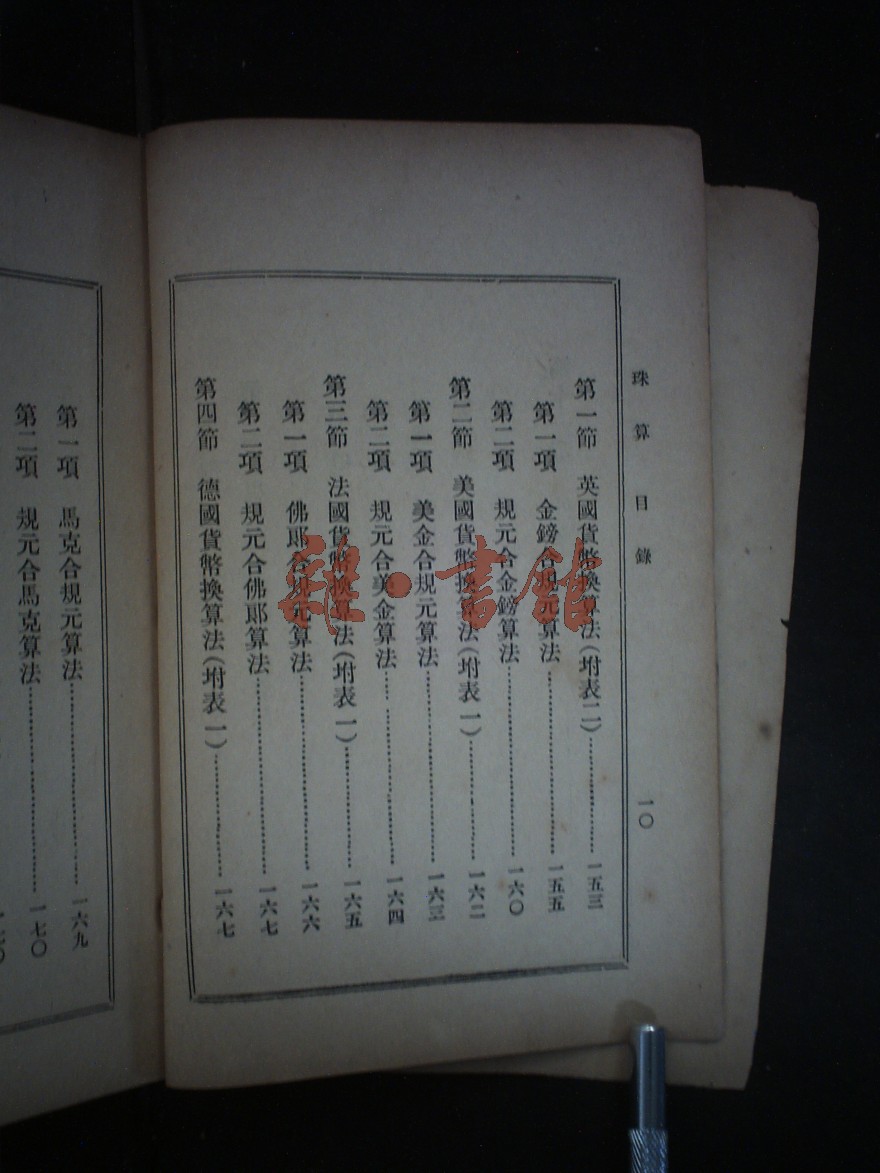 珠算 目錄
一〇
第一節 英國貨幣換算法(附表二)……一五三
第一項 金鎊合規元算法……一五五
第二項 規元合金鎊算法……一六〇
第二節 美國貨幣換算法(附表一)……一六二
第一項 美金合規元算法……一六三
第二項 規元合美金算法……一六四
第三節 法國貨幣換算法(附表一)……一六五
第一項 佛郎合規元算法……一六六
第二項 規元合佛郎算法……一六七
第四節 德國貨幣換算法(附表一)……一六七
第一項 馬克合規元算法……一六九
第二項 規元合馬克算法……一七〇
雜·書館